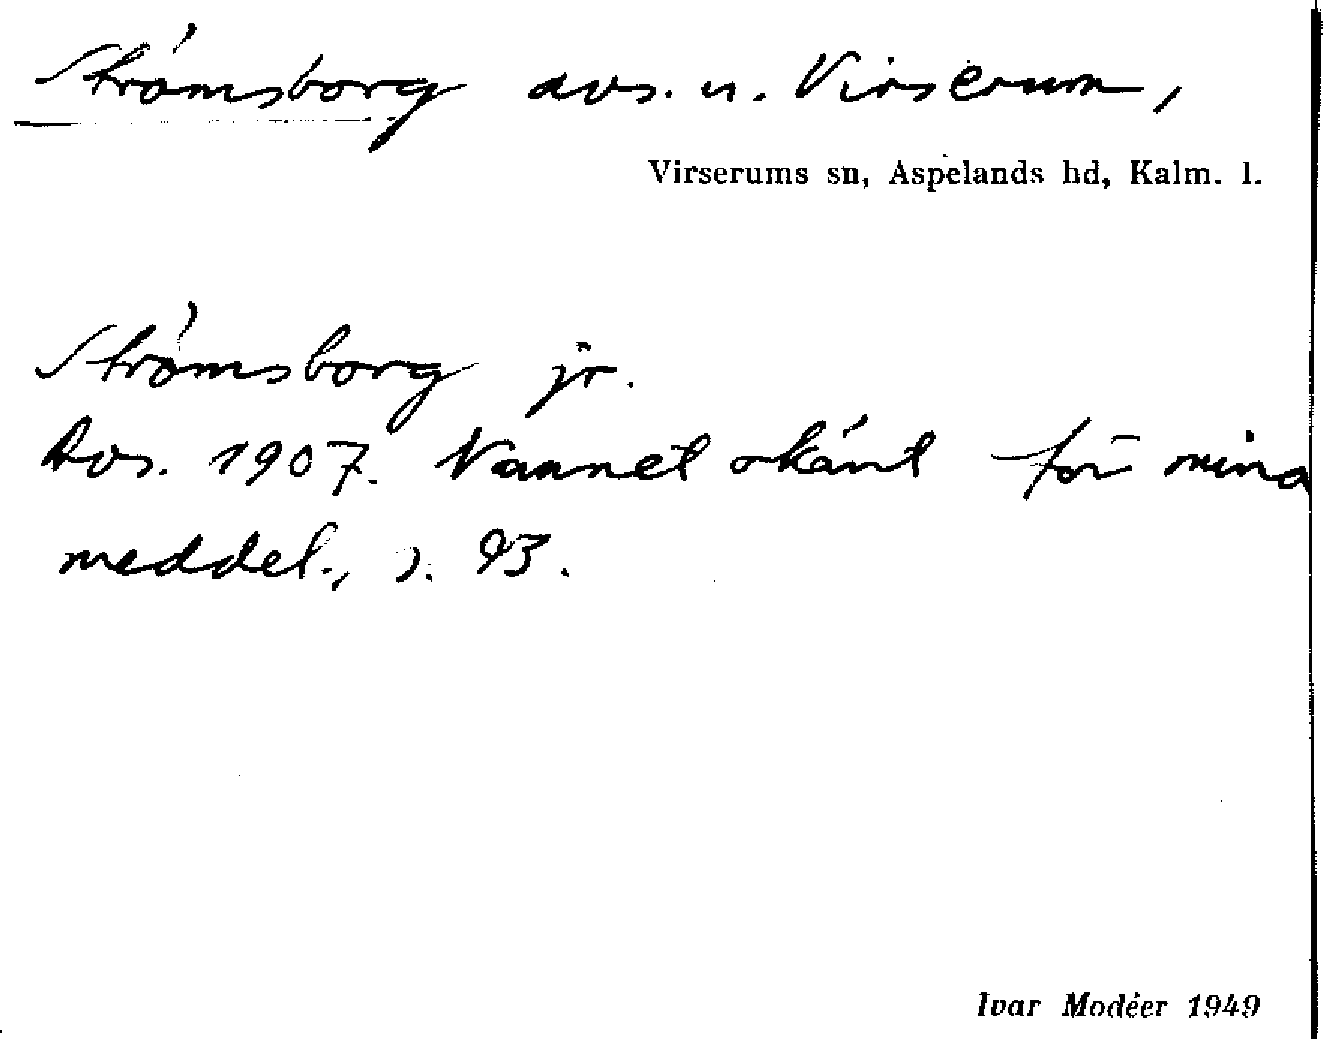 Strömsborg avs. u. Virserum,
Virserums sn, Aspelands hd, Kalm. l.
Strömsborg jr.
Avs. 1907. Namnet okänt för mina
meddel., s. 93.
Ivar Modéer 1949